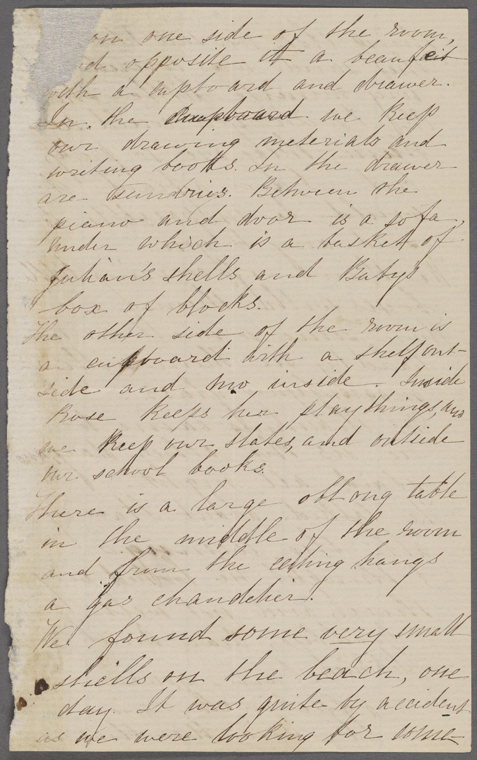 on one side of the room,
and opposite it a beaufeit
with a cupboard and drawer.
In the cuupboard we keep
our drawing meterials and
writing books. In the drawer
are sundries. Between the
piano and door is a sofa,
under which is a basket of
Julian's shells and Baby's
box of blocks.
The other side of the room is
a cupboard with a shelf out-
side and two inside. Inside
Rose keeps her playthings, and
we keep our slates, and outside
our school books.
There is a large oblong table
in the middle of the room
and from the ceiling hangs
a gas chandelier.
We found some very small
shells on the beach, one
day. It was quite by accident
as we were looking for some-